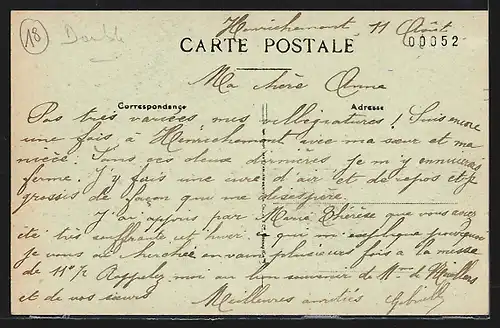 18
Double
Henrichemont, 11 Août
00052
CARTE POSTALE
Ma chère Anna
Correspondance
Adresse
Pas très variées mes villégiatures ! Suis encore
une fois à Henrichemont avec ma sœur et ma
nièce. Sans ces deux dernières je m'y ennuierais
ferme. J'y fais une cure d'air et de repos et je
grossis de façon que me désespère.
J'ai appris par Marie Thérèse que vous avez
été très souffrante cet hiver ce qui m'explique pourquoi
je vous ai cherchée en vain plusieurs fois à la messe
de 11h½ Rappelez moi au bon souvenir de Mme de
et de vos sœurs Meilleures amitiés